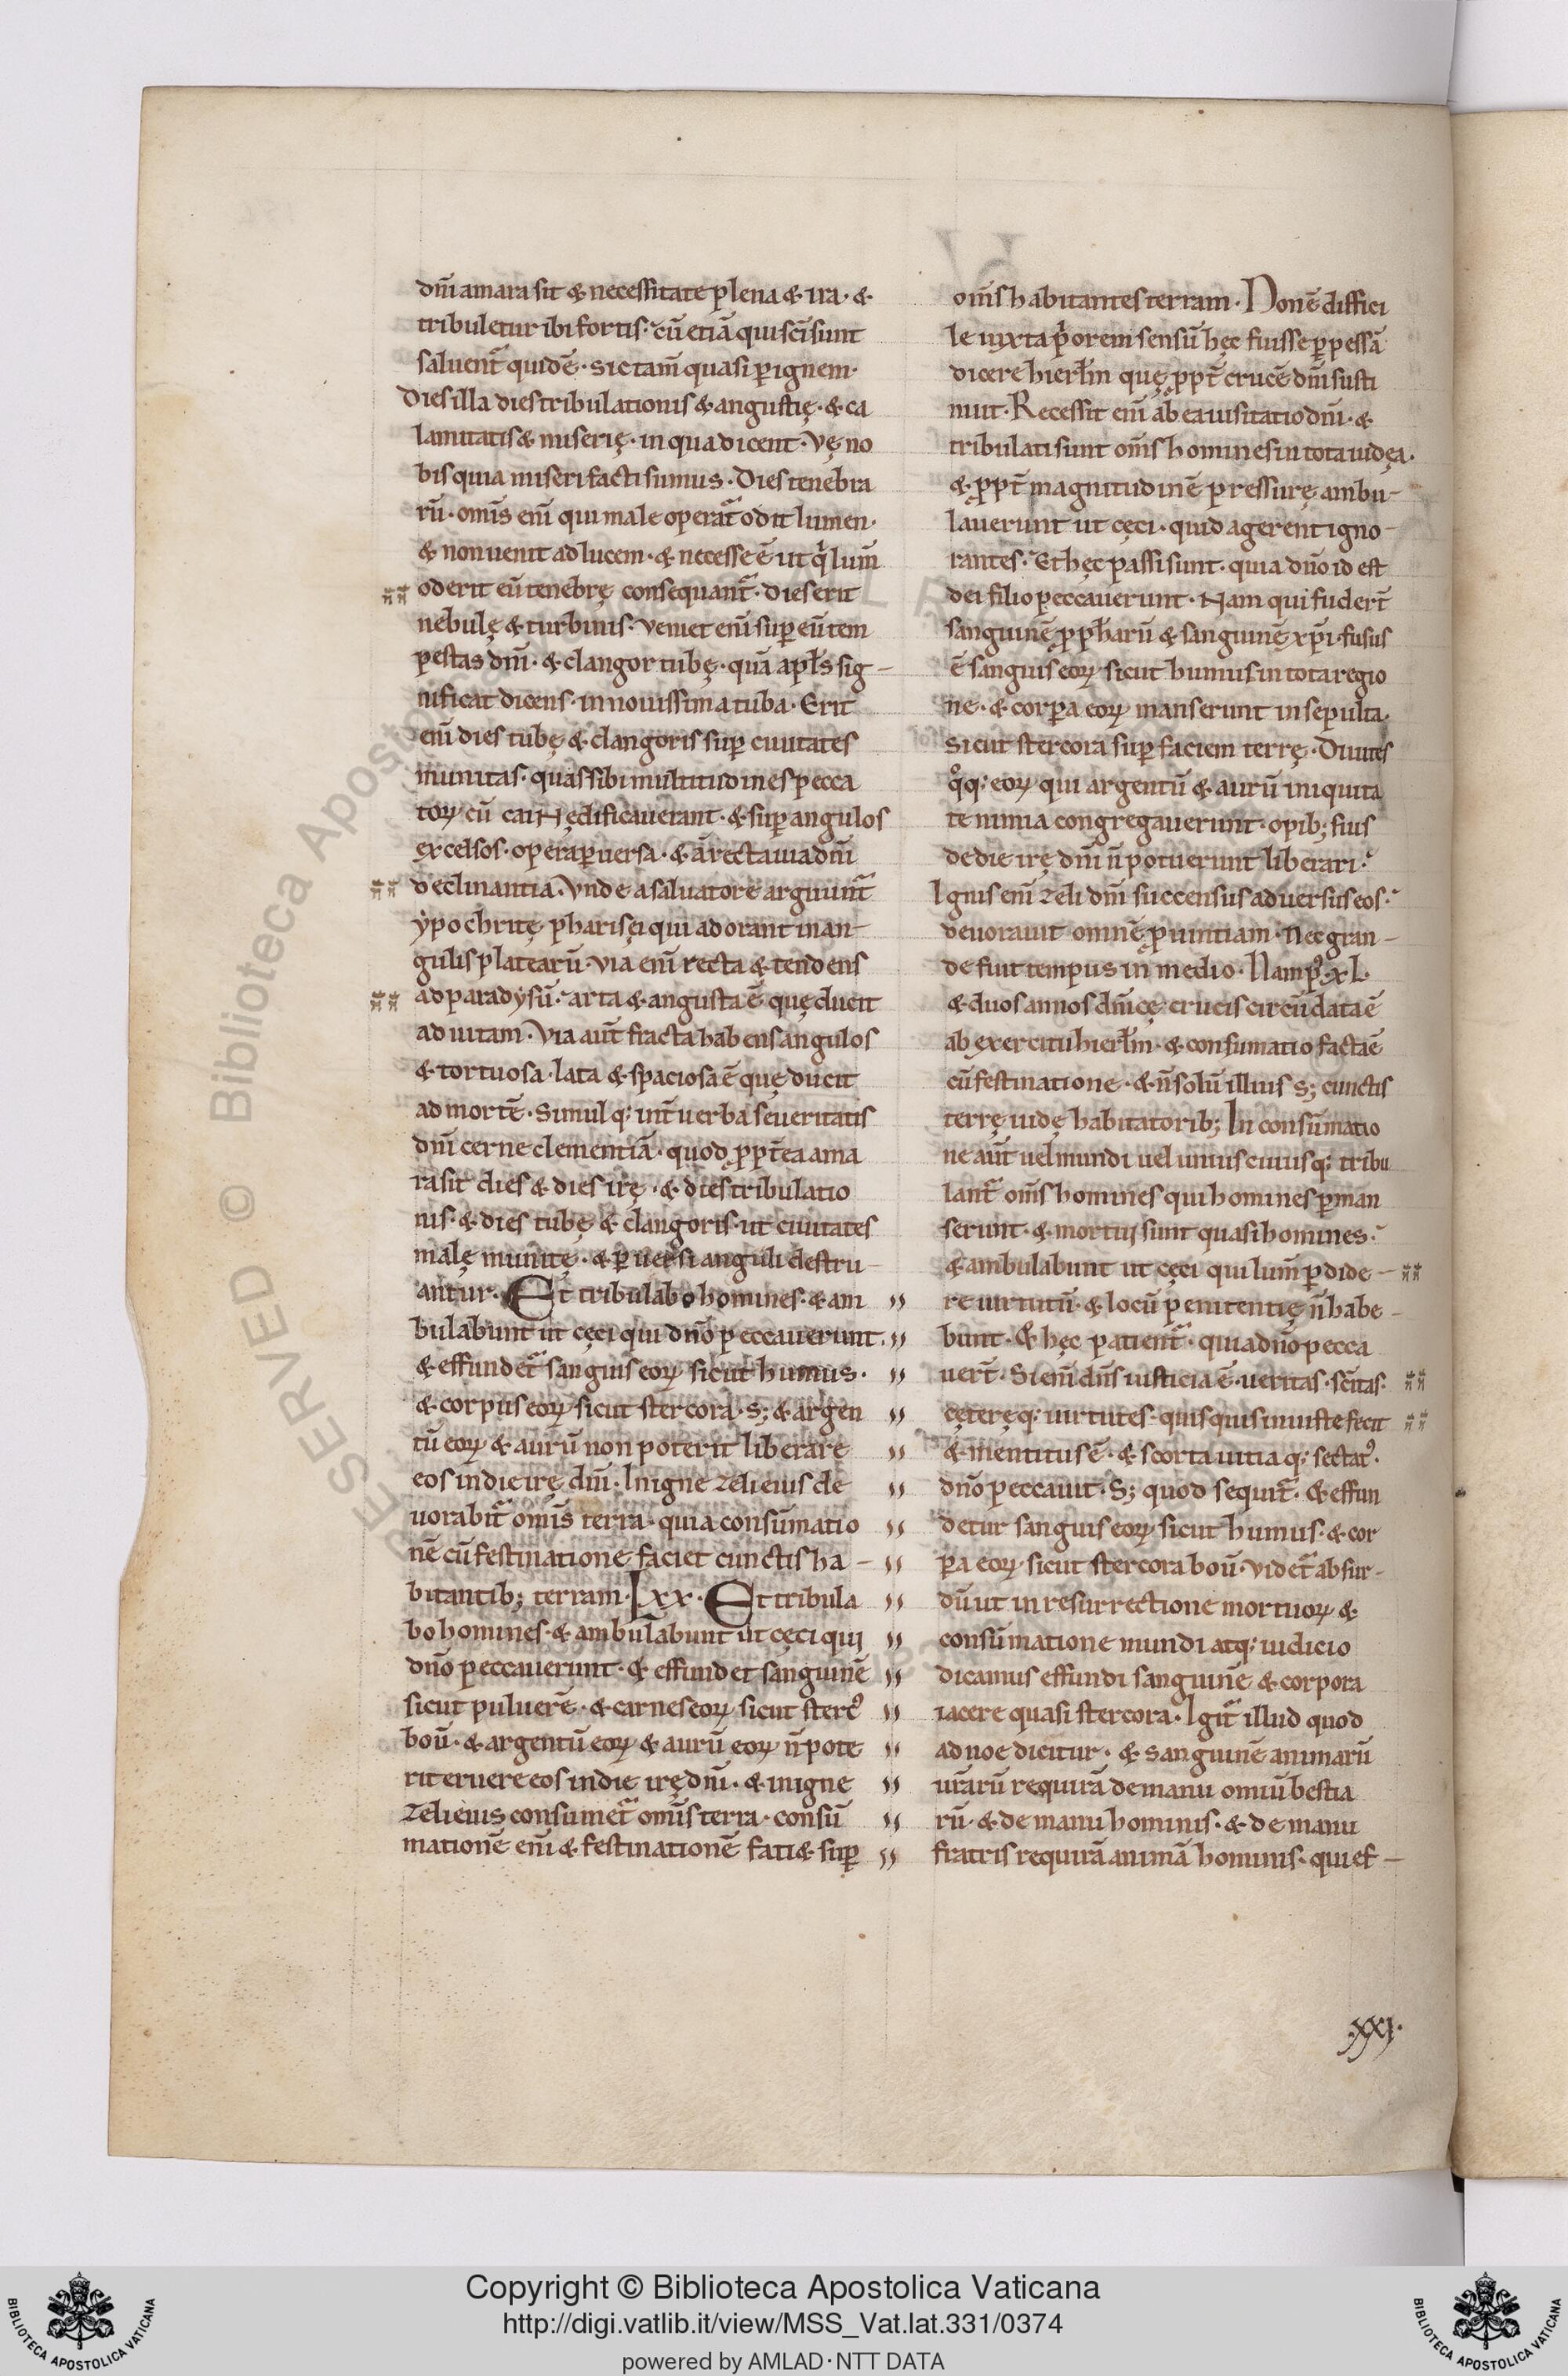 dñi amara sit & necessitate plena & ira · &
tribuletur ibi fortis · cũ etiã qui sc̃i sunt
saluent̃ quidẽ · sic tam̃ quasi ꝑ ignem ·
Dies illa dies tribulationis & angustię · & ca
lamitatis & miserię · in qua dicent · Vę no
bis quia miseri facti sumus · Dies tenebra
rũ · omĩs enĩ qui male operat̃ odit lumen ·
& non uenit ad lucem · & necesse ẽ ut q̇ lum̃
oderit eũ tenebrę consequant̃ · dies erit
nebulę & turbinis · veniet enĩ suꝑ eũ tem
pestas dñi · & clangor tubę · quã apl̃s sig –
nificat dicens · in nouissima tuba · Erit
enĩ dies tubę & clangoris suꝑ ciuitates
munitas · quas sibi multitudines pecca
toꝝ cũ cain ędificauerant · & suꝑ angulos
excelsos · opera ꝑuersa · & a recta uia dñi
declinantia · Vnde a saluatore arguunt̃
ẏpochritę pharisęi qui adorant in an –
gulis platearũ · via enĩ recta & tendens
ad paradẏsũ · arta & angusta ẽ quę ducit
ad uitam · Via aut̃ fracta habens angulos
& tortuosa · lata & spaciosa ẽ quę ducit
ad mortẽ · Simul q; int̃ uerba seueritatis
dñi cerne clementiã · quod ꝓpt̃ea ama
ra sit dies & dies irę · & dies tribulatio
nis · & dies tubę & clangoris · ut ciuitates
malę munitę · & ꝑuersi anguli destru –
antur · Et tribulabo homines · & am „
bulabunt ut cęci qui dño peccauerunt · „
& effundet̃ sanguis eoꝝ sicut humus · „
& corpus eoꝝ sicut stercora · s; & argen „
tũ eoꝝ & aurũ non poterit liberare „
eos in die irę dñi · In igne zeli eius de „
uorabit̃ omĩs terra · quia consũmatio „
nẽ cũ festinatione faciet cunctis ha – „
bitantib; terram · Lxx · Et tribula „
bo homines · & ambulabunt ut cęci qui „
dño peccauerunt · & effundet sanguinẽ „
sicut puluerẽ · & carnes eoꝝ sicut sterc̉ „
boũ · & argentũ eoꝝ & aurũ eoꝝ ñ pote „
rit eruere eos in die irę dñi · & in igne „
zeli eius consumet̃ omĩs terra · consũ „
mationẽ enĩ & festinationẽ faci& suꝑ „
om̃s habitantes terram · Non ẽ diffici
le iuxta p̃orem sensũ hęc fuisse ꝑpessã
dicere hierl̃m quę ꝓpt̃ crucẽ dñi susti
nuit · Recessit enĩ ab ea uisitatio dñi · &
tribulati sunt om̃s homines in tota iudęa ·
& ꝓpt̃ magnitudinẽ pressurę ambu –
lauerunt ut cęci · quid agerent igno –
rantes · Et hęc passi sunt · quia dño id est
dei filio peccauerunt · Nam qui fudert̃
sanguinẽ ꝓph̃arũ & sanguinẽ xp̃i · fusus
ẽ sanguis eoꝝ sicut humus in tota regio
ne · & corꝑa eoꝝ manserunt insepulta ·
sicut stercora suꝑ faciem terrę · Diuites
q̊q; eoꝝ qui argentũ & aurũ iniquita
te nimia congregauerunt · opib; suis
de die irę dñi ñ potuerunt liberari ·
Ignis enĩ zeli dñi succensus aduersus eos ·
deuorauit omnẽ ꝓuintiam · Nec gran –
de fuit tempus in medio · Nam pꝰ · xL ·
& duos annos dñicę crucis circũdata ẽ
ab exercitu hierl̃m · & consumatio facta ẽ
cũ festinatione · & ñ solũ illius s; cunctis
terrę iudę habitatorib; In consũmatio
ne aut̃ uel mundi uel unius cuiusq; tribu
lant̃ om̃s homines qui homines ꝑman
serunt · & mortui sunt quasi homines ·
& ambulabunt ut cęci qui lum̃ ꝑdide –
re uirtutũ · & locũ penitentię ñ habe –
bunt · & hęc patient̃ · quia dño pecca
uert̃ · Si enĩ dñs iusticia ẽ · ueritas · sc̃itas ·
cęteręq; uirtutes · quisquis iniuste fecit
& mentitus ẽ · & scorta uitia q; sectatꝰ ·
dño peccauit · S; quod sequit̃ · & effun
detur sanguis eoꝝ sicut humus · & cor
ꝑa eoꝝ sicut stercora boũ · videt̃ absur –
dũ ut in resurrectione mortuoꝝ &
consũmatione mundi atq; iudicio
dicamus effundi sanguinẽ & corpora
iacere quasi stercora · Igit̃ illud quod
ad noe dicitur · & sanguinẽ animarũ
ur̃arũ requirã de manu omiũ bestia
rũ · & de manu hominis · & de manu
fratris requirã animã hominis · qui ef –
· xxi ·
RESERVED © Biblioteca Aposto
Copyright © Biblioteca Apostolica Vaticana
http://digi.vatlib.it/view/MSS_Vat.lat.331/0374
powered by AMLAD · NTT DATA
BIBLIOTECA APOSTOLICA VATICANA
BIBLIOTECA APOSTOLICA VATICANA